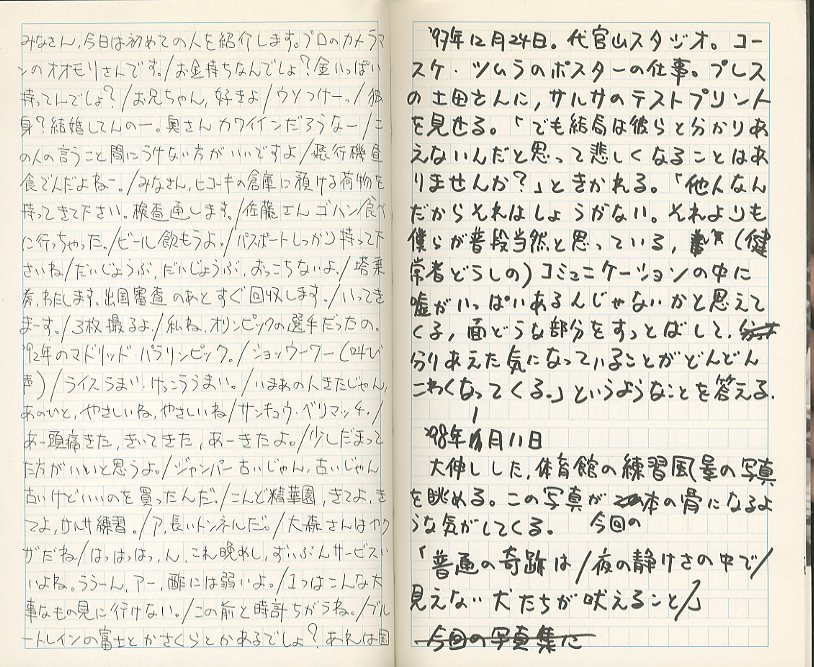 みなさん、今日は初めての人を紹介します。プロのカメラマ
ンのオオモリさんです。/お金持ちなんでしょ?金いっぱい
持ってんでしょ?/お兄ちゃん、好きよ/ウソつけー。/独
身?結婚してんのー。奥さんカワイインだろうなー/
の人の言うこと間にうけない方がいいですよ/飛行機
食でんだよねー。/みなさん、ヒコーキの倉庫に預ける荷物を
持ってきて下さい。検査通します。/佐藤さんゴハン食べ
に行っちゃった。/ビール飲もうよ。/パスポートしっかり持って下
さいね/だいじょうぶ、だいじょうぶ、おっこちないよ。/搭乗
券、わたします、出国審査のあとすぐ回収します。/いってき
まーす。/3枚撮るよ/私ね、オリンピックの選手だったの。
'92年のマドリッド・パラリンピック。/ショウーワー(叫び
声)/ライスうまい、けっこううまい。/いまあの人きたじゃん、
あのひと、やさしいね、やさしいね/サンキュウ・ベリマッチ・/
あー頭痛きた、きいてきた、あーきたよ。/少しだまって
た方がいいと思うよ。/ジャンパー古いじゃん、古いじゃん
古いけどいいのを買ったんだ。/こんど精華園、きてよ、き
てよ、サルサ練習。/ア、長いトンネルだ。/大森さんはヤク
ザだね/はっはっはっ、ん、これ晩めし、ずいぶんサービスい
いよね。ううーん、アー、酢には弱いよ。/1つはこんな大
事なもの見に行けない。/この前と時計ちがうね。/ブル
ートレインの富士とかさくらとかあるでしょ?あれは国
'97年12月24日。代官山スタジオ。コー
スケ・ツムラのポスターの仕事。プレス
の土田さんに、サルサのテストプリント
を見せる。「でも結局は彼らと分かりあ
えないんだと思って悲しくなることはあ
りませんか?」ときかれる。「他人なん
だからそれはしょうがない。それよりも
僕らが普段当然と思っている、(健
常者どうしの)コミュニケーションの中に
嘘がいっぱいあるんじゃないかと思えて
くる、面どうな部分をすっとばして、
分りあえた気になっていることがどんどん
こわくなってくる。」というようなことを答える。
'98年1月11日
大伸しした、体育館の練習風景の写真
を眺める。この写真が本の骨になるよ
うな気がしてくる。 今回の
「普通の奇跡は/夜の静けさの中で/
見えない犬たちが吠えること/」
今回の写真集に